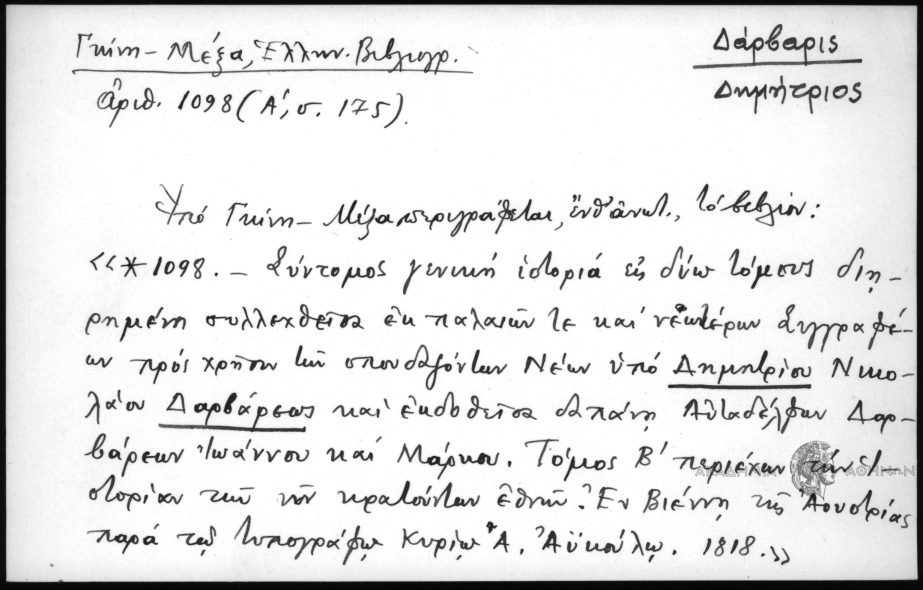 Γκίνη - Μέξα, Ἑλλην. Βιβλιογρ.
ἀριθ. 1098 (Α', σ. 175).
Δάρβαρις
Δημήτριος
Ὑπό Γκίνη - Μέξα περιγράφεται, ἔνθ' ἀνωτ., τό βιβλίον:
«* 1098. - Σύντομος γενική ἱστορία εἰς δύω τόμους διη-
ρημένη συλλεχθεῖσα ἐκ παλαιῶν τε καί νεωτέρων Συγγραφέ-
ων πρός χρῆσιν τῶν σπουδαζόντων Νέων ὑπό Δημητρίου Νικο-
λάου Δαρβάρεως καί ἐκδοθεῖσα δαπάνῃ Αὐταδέλφων Δαρ-
βάρεων Ἰωάννου καί Μάρκου. Τόμος Β' περιέχων τήν Ἱ-
στορίαν τῶν νῦν κρατούντων ἐθνῶν. Ἐν Βιέννῃ τῆς Ἀουστρίας
παρά τῷ τυπογράφῳ Κυρίῳ Ἀ. Ἀϋκούλῳ. 1818.»
ΑΚΑΔΗΜΙΑ ΑΘΗΝΩΝ